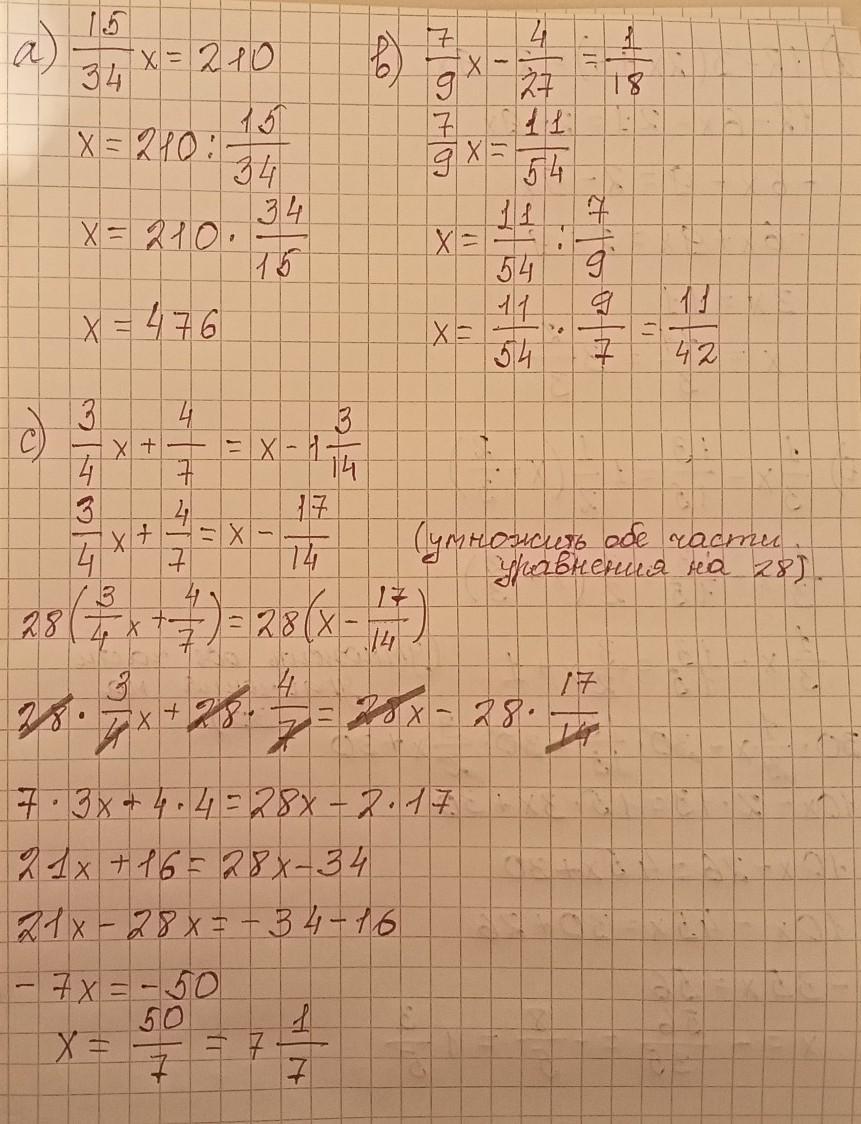 а) 15/34 x = 210
x = 210 : 15/34
x = 210 · 34/15
x = 476
в) 7/9 x - 4/27 = 1/18
7/9 x = 11/54
x = 11/54 : 7/9
x = 11/54 · 9/7 = 11/42
с) 3/4 x + 4/7 = x - 1 3/14
3/4 x + 4/7 = x - 17/14
(умножить обе части
уравнения на 28)
28(3/4 x + 4/7) = 28(x - 17/14)
28 · 3/4 x + 28 · 4/7 = 28x - 28 · 17/14
7 · 3x + 4 · 4 = 28x - 2 · 17
21x + 16 = 28x - 34
21x - 28x = - 34 - 16
- 7x = - 50
x = 50/7 = 7 1/7